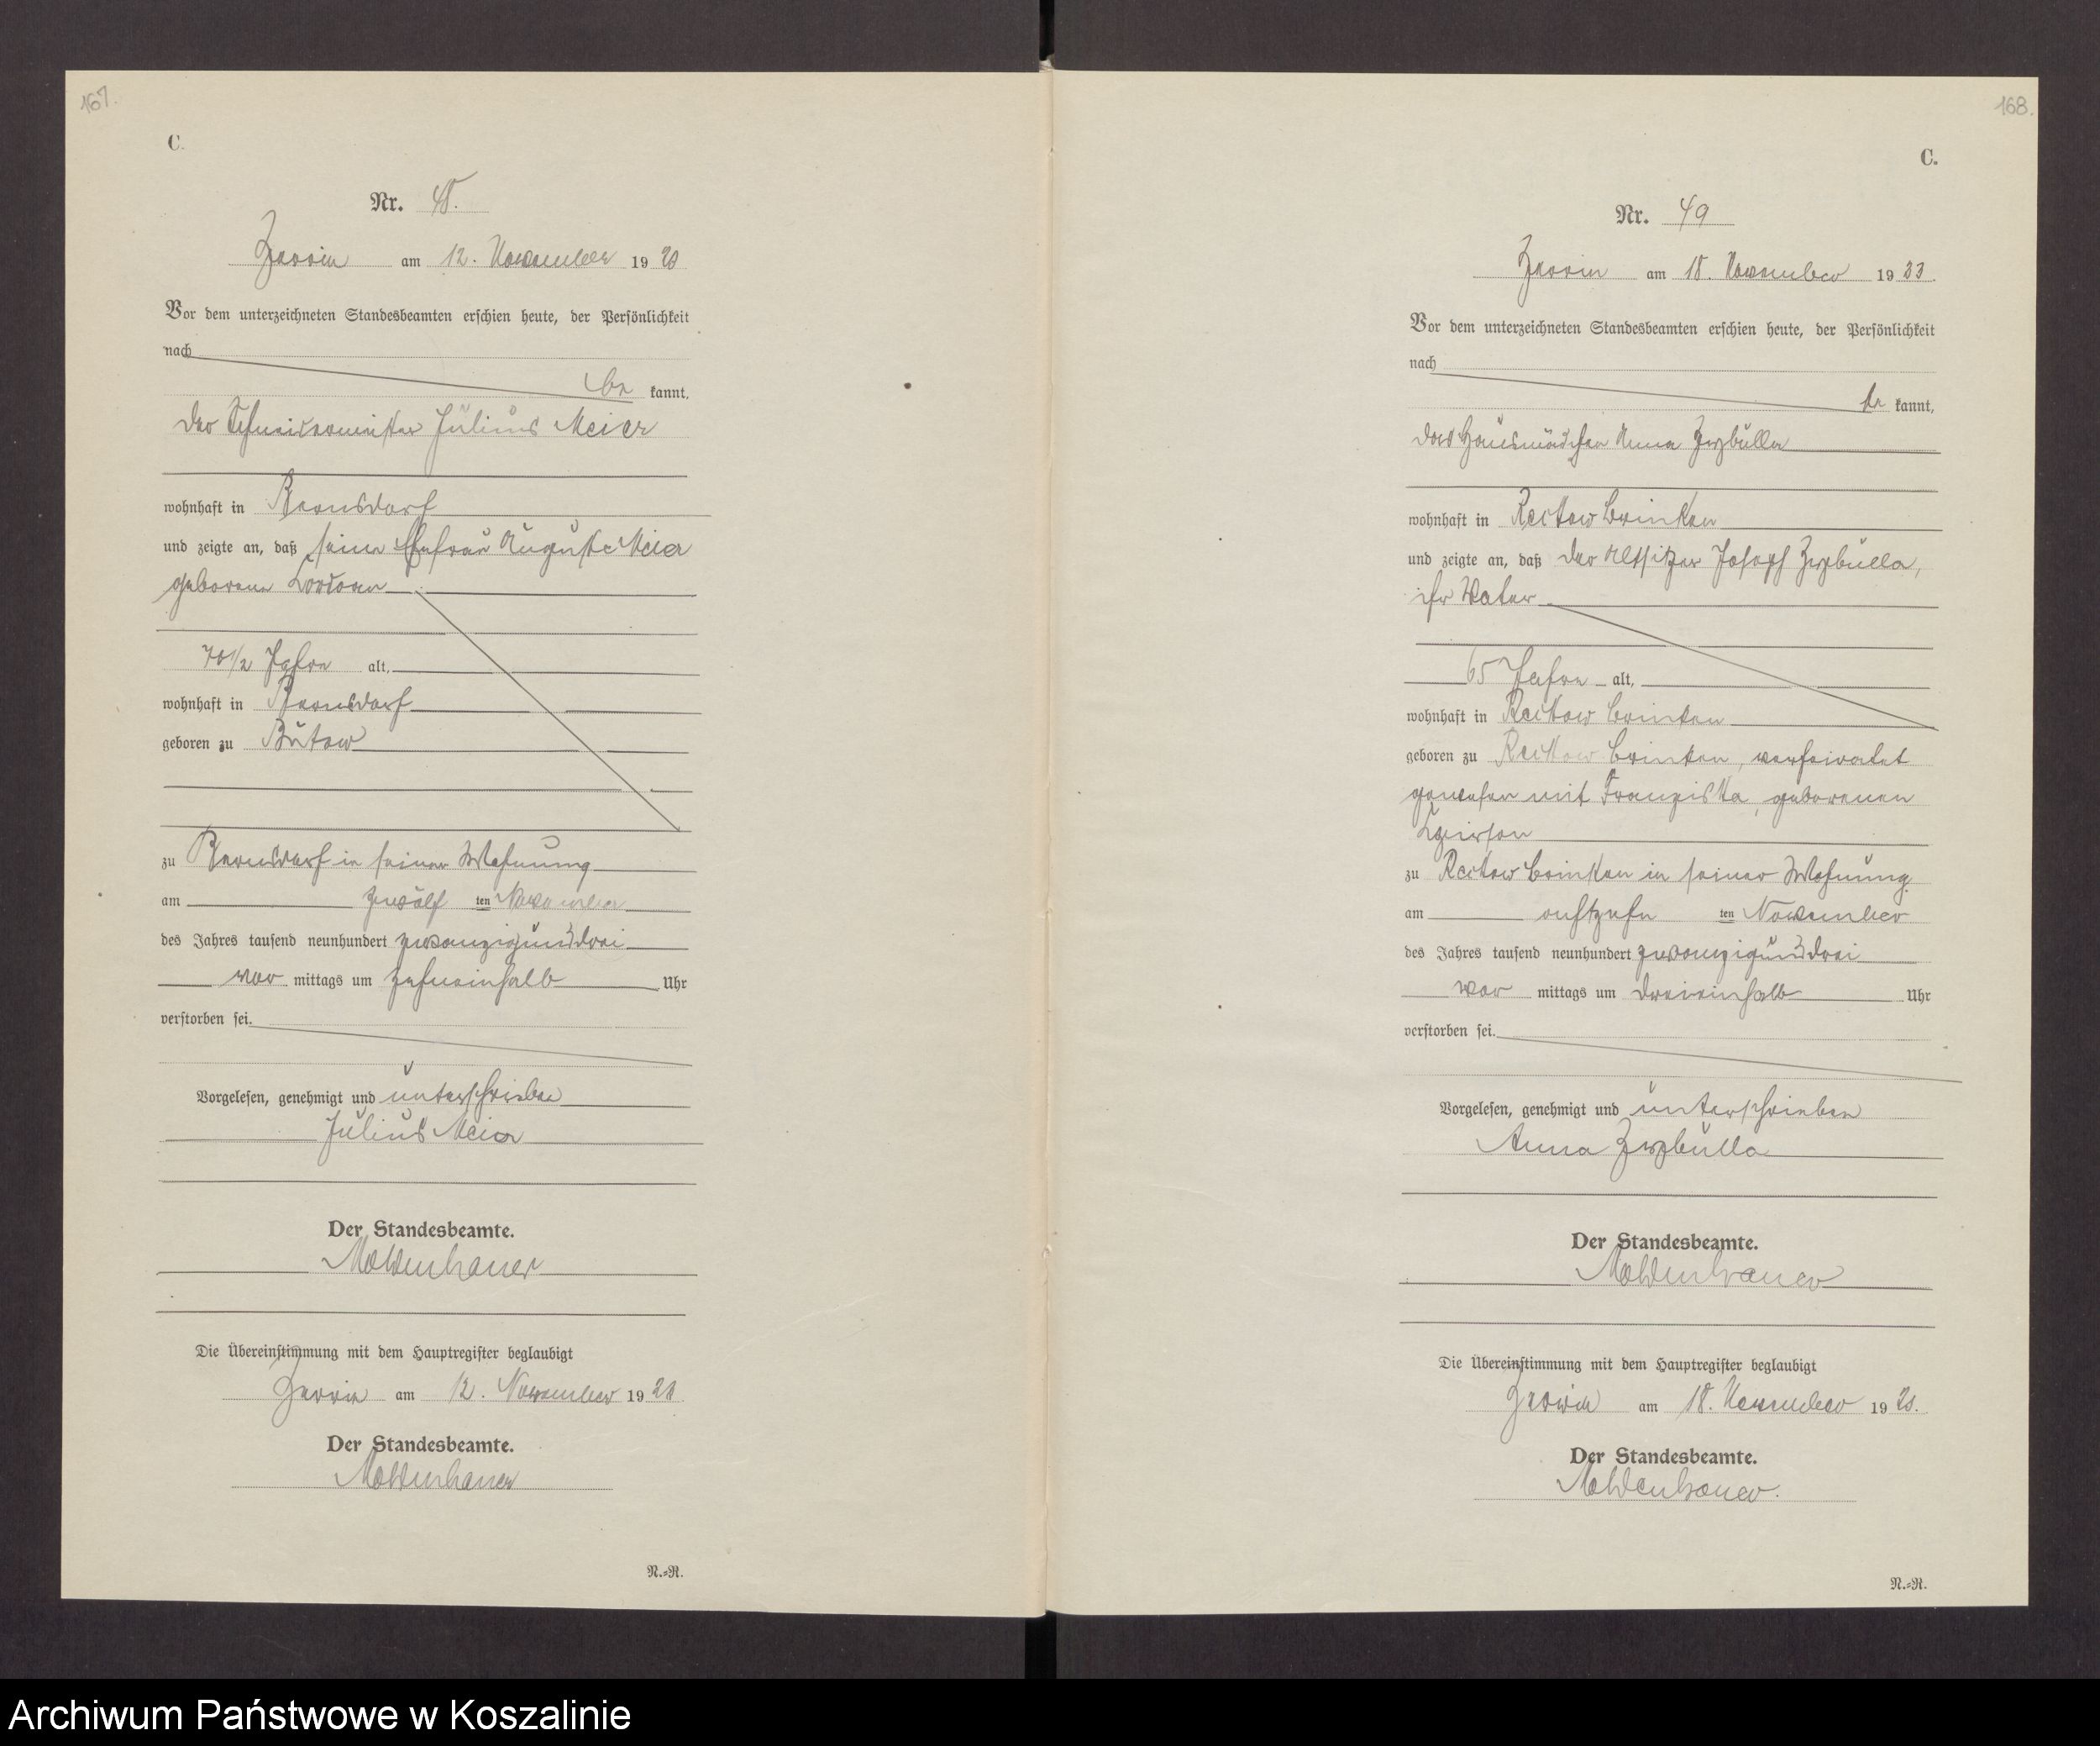 167.
C.
Nr. 48.
Zerrin am 12. November 1923
Vor dem unterzeichneten Standesbeamten erschien heute, der Persönlichkeit
nach
be kannt,
der Schneidermeister Julius Meier
wohnhaft in Bernsdorf
und zeigte an, daß seine Ehefrau Auguste Meier
geborene
70 1/2 Jahre alt,
wohnhaft in Bernsdorf
geboren zu Bütow
zu Bernsdorf in seiner Wohnung
am zwölf ten November
des Jahres tausend neunhundert zwanzigunddrei
vor mittags um zehneinhalb Uhr
verstorben sei.
Vorgelesen, genehmigt und unterschrieben
Julius Meier
Der Standesbeamte.
Moldenhauer
Die Übereinstimmung mit dem Hauptregister beglaubigt
Zerrin am 12. November 1923
Der Standesbeamte.
Moldenhauer
N.=R.
168.
C.
Nr. 49
Zerrin am 18. November 1923.
Vor dem unterzeichneten Standesbeamten erschien heute, der Persönlichkeit
nach
be kannt,
das Hausmädchen Anna Zyzbulla
wohnhaft in Reckow Brinken
und zeigte an, daß der Altsitzer Joseph Zyzbulla,
ihr Vater
65 Jahre alt,
wohnhaft in Reckow Brinken
geboren zu Reckow Brinken, verheiratet
gewesen mit Franziska, geborenen
zu Reckow Brinken in seiner Wohnung
am achtzehn ten November
des Jahres tausend neunhundert zwanzigunddrei
vor mittags um dreieinhalb Uhr
verstorben sei.
Vorgelesen, genehmigt und unterschrieben
Anna Zyzbulla
Der Standesbeamte.
Moldenhauer
Die Übereinstimmung mit dem Hauptregister beglaubigt
Zerrin am 18. November 1923.
Der Standesbeamte.
Moldenhauer.
N.=R.
Archiwum Państwowe w Koszalinie